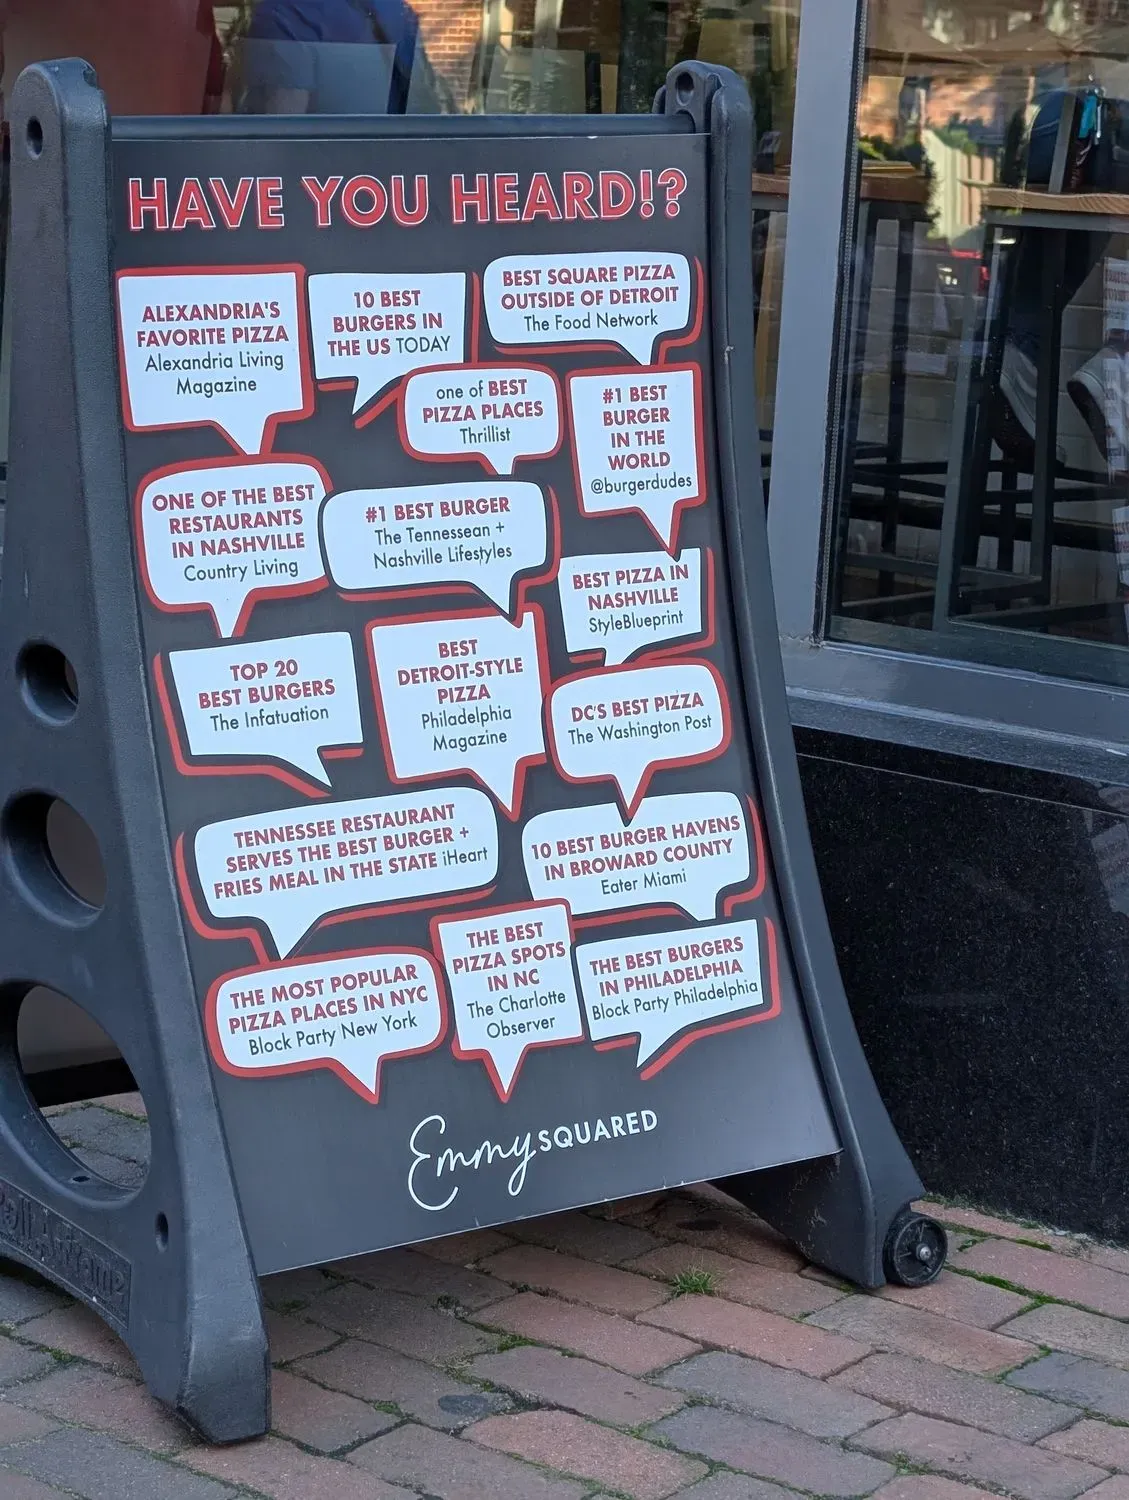 HAVE YOU HEARD!?
ALEXANDRIA'S
FAVORITE PIZZA
Alexandria Living
Magazine
10 BEST
BURGERS IN
THE US TODAY
BEST SQUARE PIZZA
OUTSIDE OF DETROIT
The Food Network
one of BEST
PIZZA PLACES
Thrillist
#1 BEST
BURGER
IN THE
WORLD
@burgerdudes
ONE OF THE BEST
RESTAURANTS
IN NASHVILLE
Country Living
#1 BEST BURGER
The Tennessean +
Nashville Lifestyles
BEST PIZZA IN
NASHVILLE
StyleBlueprint
TOP 20
BEST BURGERS
The Infatuation
BEST
DETROIT-STYLE
PIZZA
Philadelphia
Magazine
DC'S BEST PIZZA
The Washington Post
TENNESSEE RESTAURANT
SERVES THE BEST BURGER +
FRIES MEAL IN THE STATE iHeart
10 BEST BURGER HAVENS
IN BROWARD COUNTY
Eater Miami
THE MOST POPULAR
PIZZA PLACES IN NYC
Block Party New York
THE BEST
PIZZA SPOTS
IN NC
The Charlotte
Observer
THE BEST BURGERS
IN PHILADELPHIA
Block Party Philadelphia
Emmy SQUARED